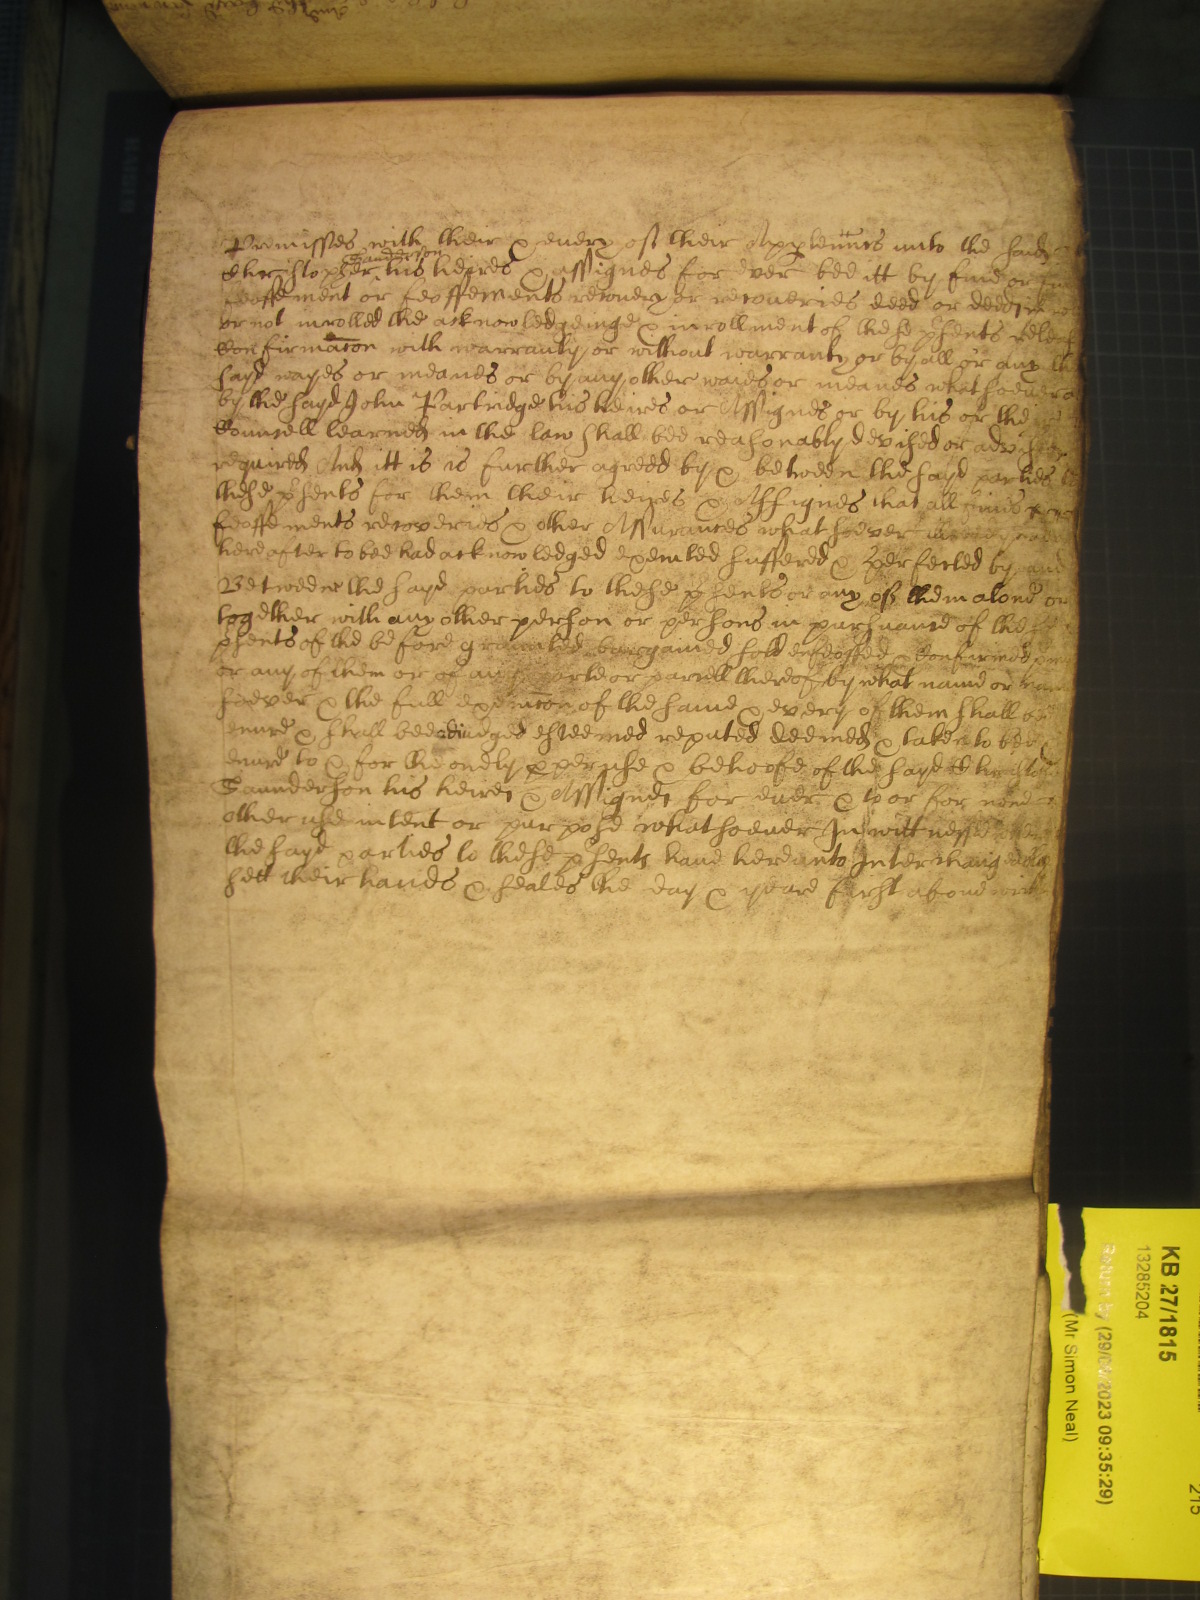 Premisses with their & every of their Appten̄nces unto the said
Christopher Saunderson his heires & assignes for ever bee itt by fine or
feoffement or feoffements recovery or recoveries deed or deeds
or not inrolled the acknowledgeinge & inrollment of these p̱sents
Confirmac̄on with warranty or without warranty or by all or any
sayd wayes or meanes or by any other waies or meanes whatsoever
by the sayd John Partridge his heires or Assignes or by his or
Councell learned in the law shall bee reasonably devised or
required And itt is is further agreed by & betweene the sayd parties
these p̱sents for them their heires & Assignes that all fines
feoffements recoveries & other Assurances whatsoever
hereafter to bee had acknowledged executed suffered & perfected by and
Betweene the sayd parties to these p̱sents or any of them alone or
together with any other person or persons in pursuance of the
p̱sents of the before graunted bargained sold enfeoffed & confirmed
or any of them or of any parte or parcell thereof by what name or
soever & the full execuc̄on of the same & every of them shall
enure & shall bee adiudged esteemed reputed deemed & taken to bee
enure to & for the onely p̱per use & behoofe of the sayd
Saunderson his heires & Assignes for ever & to or for none
other use intent or purpose whatsoever In wittnesse
the sayd parties to these p̱sents have hereunto Interchangeably
sett their hands & seales the day & yeare first above
KB 27/1815
13285204
Return by (29/ 2023 09:35:29)
(Mr Simon Neal)
215